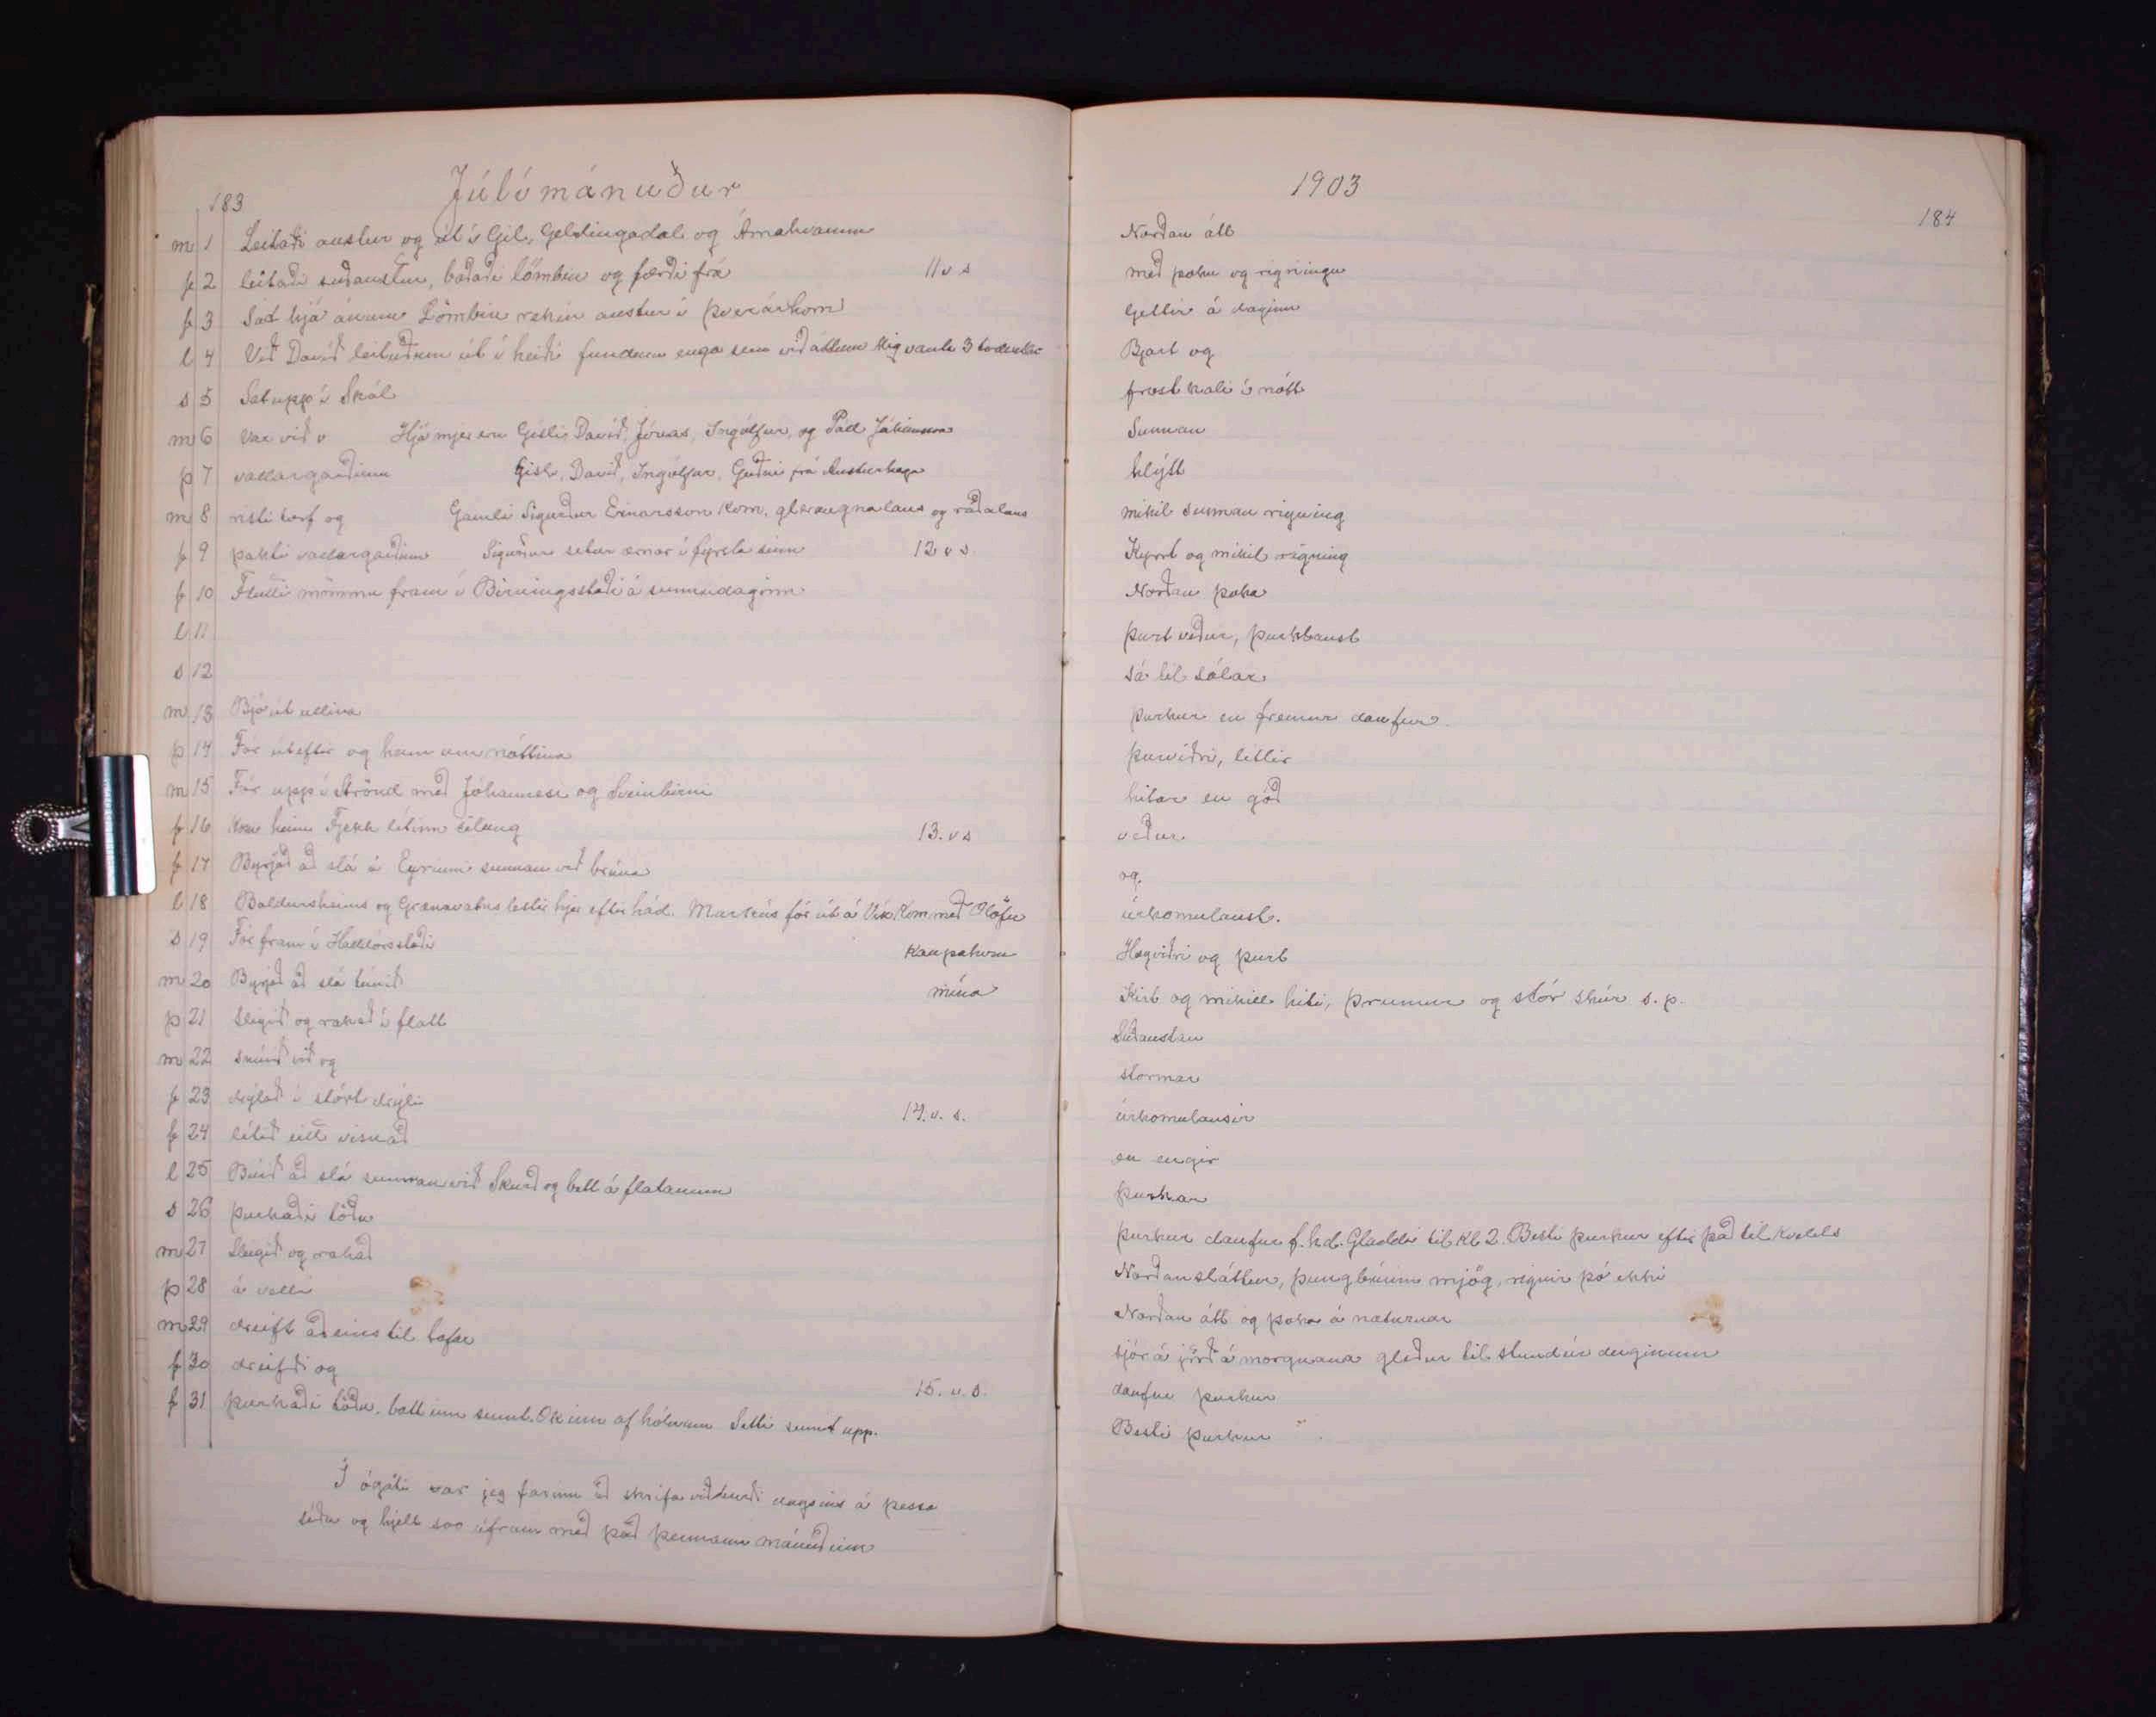 183
Júlímánuður
m 1 Leitaði austur og út í Gil, Geldingadal og Árnahvamm
f 2 leitaði suðaustur, baðaði lömbin og færði frá 11 v s
f 3 Sat hjá ánum Lömbin rekin austur í Þverárhorn
l 4 Við Davíð leituðum út í heiði fundum enga sem við áttum Mig vanta 3
s 5 Sat upp í Skál
m 6 Var við Hjá mjer eru Gísli, Davíð, Jónas, Ingólfur, og Páll Jóhannsson
þ 7 vallargarðinn Gísli, Davíð, Ingólfur, Guðni frá Austurhaga
m 8 risti torf og Gamli Sigurður Einarsson kom, gleraugnalaus og ráðalaus
f 9 þakti vallargarðinn Sigurður setur ærnar í fyrsta sinn 12 v s
f 10 Flutti mömmu fram í Birningsstaði á sunnudaginn
l 11
s 12
m 13 Bjó út ullina
þ 14 Fór úteftir og heim um nóttina
m 15 Fór upp í Strönd með Jóhannesi og Sveinbirni
f 16 Kom heim Fjekk lítinn silung 13. v s
f 17 Byrjað að slá á Eyrinni sunnan við brúna
l 18 Baldursheims og Grænavatns lestir hjer eftir hád. Markús fór út á Vík Kom með Ólöfu
s 19 Fór fram í Halldórsstaði kaupakonu
m 20 Byrjað að slá túnið mína
þ 21 Slegið og rakað í flatt
m 22 snúið við og
f 23 drýlað í stórt drýli
f 24 lítið eitt visnað 14. v. s.
l 25 Búið að slá sunnan við Skurð og batt á flatanum
s 26 Þurkaði töðu
m 27 Slegið og rakað
þ 28 á velli
m 29 dreift aðeins til tafar
f 30 dreifði og
f 31 þurkaði töðu. batt inn sumt. Ók inn af hólnum Setti sumt upp. 15. v. s.
Í ógáti var jeg farinn að skrifa viðburði dagsins á þessa
síðu og hjelt svo áfram með það þennann mánuðinn
1903
184
Norðan átt
með þoku og rigningu
Glettir á daginn
Bjart og
frost kali í nótt
Sunnan
hlýtt
mikil sunnan rigning
Kyrrt og mikil rigning
Norðan þoka
þurt veður, þurklaust
sá til sólar
þurkur en fremur daufur
þurviðri, litlir
hitar en góð
veður.
og
úrkomulaust.
Hægviðri og þurt
Kirt og mikill hiti, þrumur og stór skúr s. p.
Suðaustan
stormar
úrkomulausir
en engir
þurkar
þurkur daufur f. hd. Gladdi til kl 2. Besti þurkur eftir það til kvelds
Norðansláttur, þungbúinn mjög, rignir þó ekki
Norðan átt og þoka á næturnar
sjór á jörð á morgnana gleður til stund úr deginum
daufur þurkur
Besti þurkur